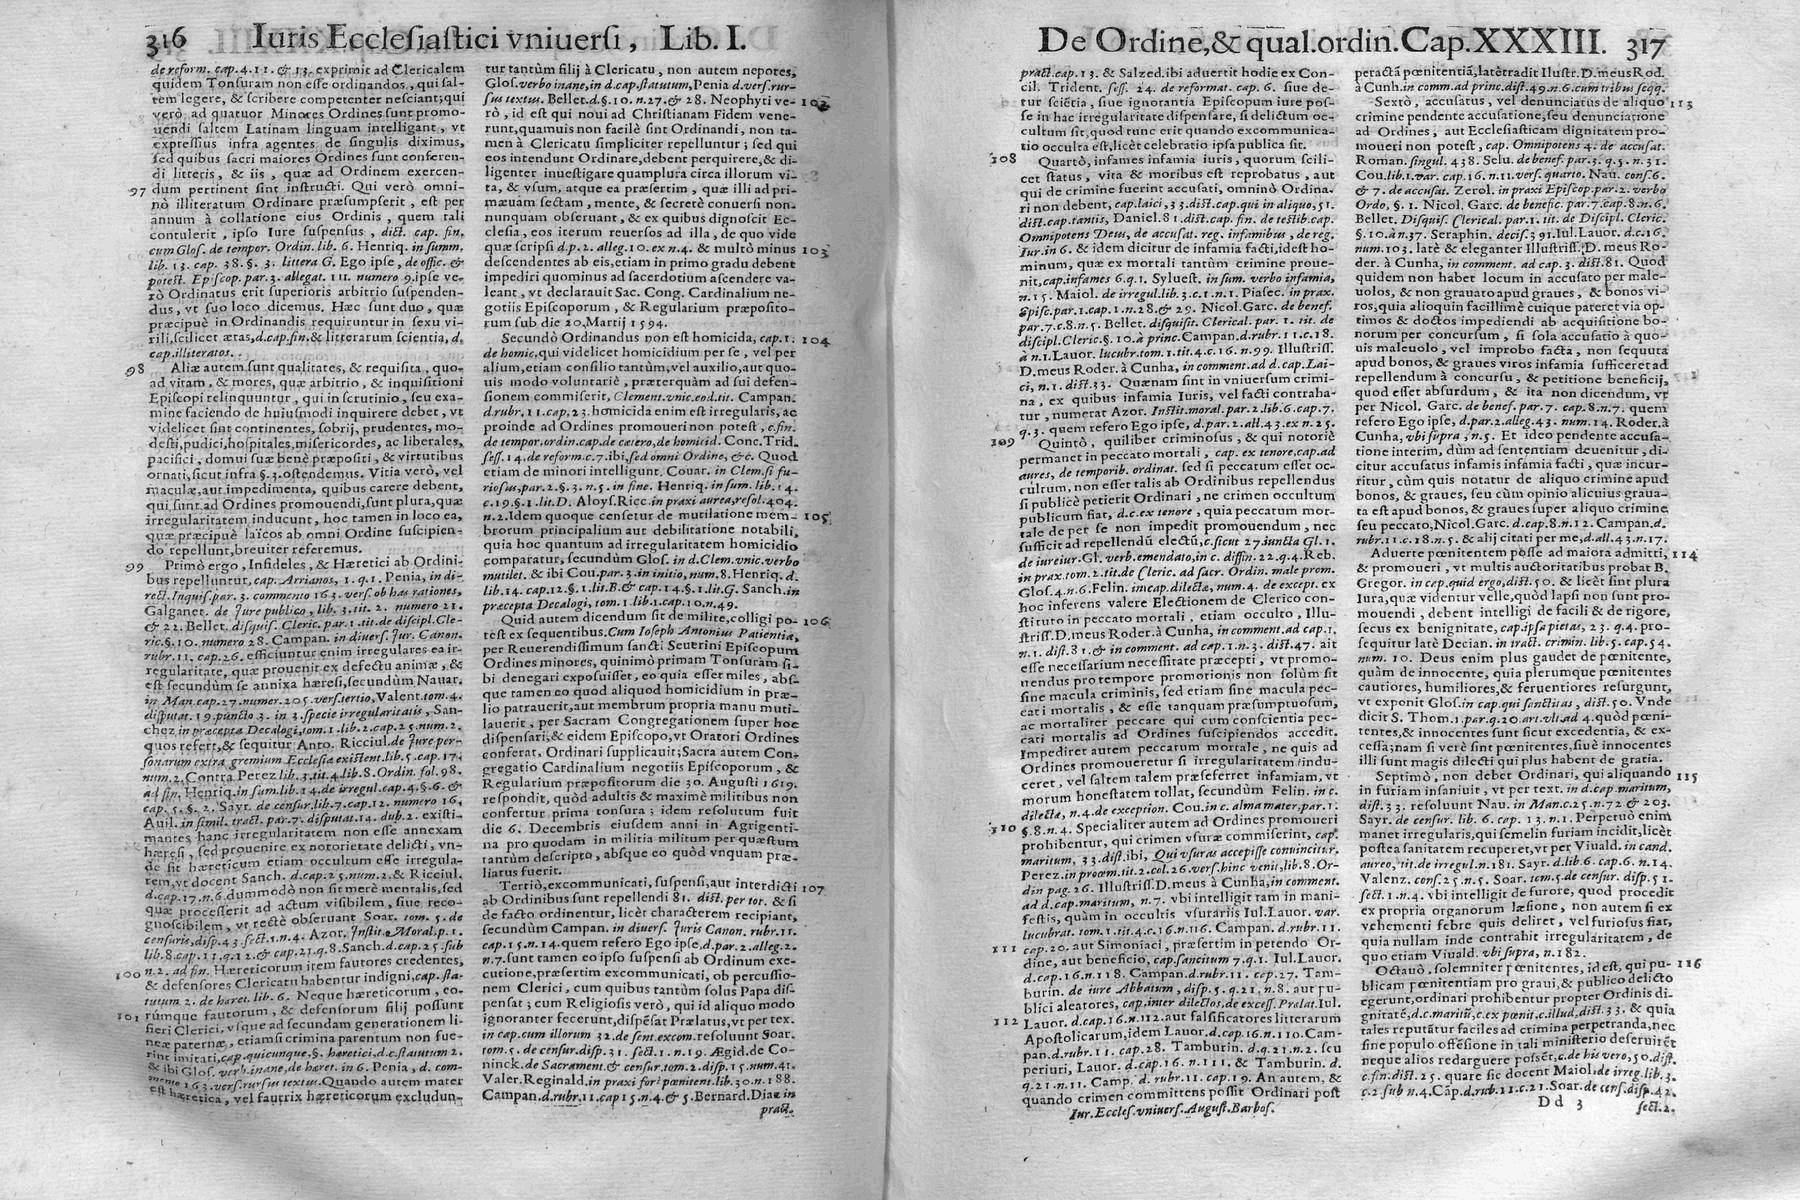 316 Iuris Ecclesiastici vniuersi, Lib. I.
de reform. cap. 4. 11. & 13. exprimit ad Clericalem
quidem Tonsuram non esse ordinandos, qui sal-
tem legere, & scribere competenter nesciant; qui
verò ad quatuor Minores Ordines sunt promo-
uendi saltem Latinam linguam intelligant, vt
expressius infra agentes de singulis diximus,
sed quibus sacri maiores Ordines sunt conferen-
di litteris, & iis, quæ ad Ordinem exercen-
97 dum pertinent sint instructi. Qui verò omni-
nò illiteratum Ordinare præsumpserit, est per
annum à collatione eius Ordinis, quem tali
contulerit, ipso Iure suspensus, dict. cap. fin.
cum Glos. de tempor. Ordin. lib. 6. Henriq. in summ.
lib. 13. cap. 38. §. 3. littera G. Ego ipse, de offic. &
potest. Episcop. par. 3. allegat. 111. numero 9. ipse ve-
rò Ordinatus erit superioris arbitrio suspenden-
dus, vt suo loco dicemus. Hæc sunt duo, quæ
præcipuè in Ordinandis requiruntur in sexu vi-
rili, scilicet ætas, d. cap. fin. & litterarum scientia, d.
cap. illiteratos.
98 Aliæ autem sunt qualitates, & requisita, quo-
ad vitam, & mores, quæ arbitrio, & inquisitioni
Episcopi relinquuntur, qui in scrutinio, seu exa-
mine faciendo de huiusmodi inquirere debet, vt
videlicet sint continentes, sobrij, prudentes, mo-
desti, pudici, hospitales, misericordes, ac liberales,
pacifici, domui suæ benè præpositi, & virtutibus
ornati, sicut infra §. 3. ostendemus. Vitia verò, vel
maculæ, aut impedimenta, quibus carere debent,
qui sunt ad Ordines promouendi, sunt plura, quæ
irregularitatem inducunt, hoc tamen in loco ea,
quæ præcipuè laïcos ab omni Ordine suscipien-
do repellunt, breuiter referemus.
99 Primò ergo, Infideles, & Hæretici ab Ordini-
bus repelluntur, cap. Arrianos, 1. q. 1. Penia, in di-
rect. Inquis. par. 3. commento 163. vers. ob has rationes,
Galganet. de Jure publico, lib. 3. tit. 2. numero 21.
& 22. Bellet. disquis. Cleric. par. 1. tit. de discipl. Cle-
ric. §. 10. numero 28. Campan. in diuers. Jur. Canon.
rubr. 11. cap. 26. efficiuntur enim irregulares ea ir-
regularitate, quæ prouenit ex defectu animæ, &
est secundùm se annixa hæresi, secundùm Nauar.
in Man. cap. 27. numer. 205. vers. tertio, Valent. tom. 4.
disputat. 19. puncto 3. in 3. specie irregularitatis, San-
chez in præcepta Decalogi, tom. 1. lib. 2. cap. 25. num. 2.
quos refert, & sequitur Anto. Ricciul. de Jure per-
sonarum extra gremium Ecclesiæ existent. lib. 5. cap. 17.
num. 2. Contra Perez lib. 3. tit. 4. lib. 8. Ordin. fol. 98.
ad fin. Henriq. in sum. lib. 14. de irregul. cap. 4. §. 6. &
cap. 5. §. 2. Sayr. de censur. lib. 7. cap. 12. numero 16.
Auil. in simil. tract. par. 7. disputat. 14. dub. 2. existi-
mantes hanc irregularitatem non esse annexam
hæresi, sed prouenire ex notorietate delicti, vn-
de sit hæreticum etiam occultum esse irregula-
rem, vt docent Sanch. d. cap. 25. num. 2. & Ricciul.
d. cap. 17. n. 6. dummodò non sit merè mentalis, sed
quæ processerit ad actum visibilem, siue reco-
gnoscibilem, vt rectè obseruant Soar. tom. 5. de
censuris, disp. 43. sect. 1. n. 4. Azor. Instit. Moral. p. 1.
lib. 8. cap. 11. q. 12. & cap. 21. q. 8. Sanch. d. cap. 25. sub
100 n. 2. ad fin. Hæreticorum item fautores credentes,
& defensores Clericatu habentur indigni, cap. sta-
tutum 2. de hæret. lib. 6. Neque hæreticorum, eo-
101 rúmque fautorum, & defensorum filij possunt
fieri Clerici, vsque ad secundam generationem li-
neæ paternæ, etiamsi crimina parentum non fue-
rint imitati, cap. quicunque, §. hæretici, d. c. statutum 2.
& ibi Glos. verb. inane, de hæret. in 6. Penia, d. com-
mento 163. vers. rursus textus. Quando autem mater
est hæretica, vel fautrix hæreticorum excludun-
tur tantùm filij à Clericatu, non autem nepotes,
Glos. verbo inane, in d. cap. statutum, Penia d. vers. rur-
sus textus. Bellet. d. §. 10. n. 27. & 28. Neophyti ve- 102
rò, id est qui noui ad Christianam Fidem vene-
runt, quamuis non facilè sint Ordinandi, non ta-
men à Clericatu simpliciter repelluntur; sed qui
eos intendunt Ordinare, debent perquirere, & di-
ligenter inuestigare quamplura circa illorum vi-
ta, & vsum, atque ea præsertim, quæ illi ad pri-
mæuam sectam, mente, & secretò conuersi non-
nunquam obseruant, & ex quibus dignoscit Ec-
clesia, eos iterum reuersos ad illa, de quo vide
quæ scripsi d. p. 2. alleg. 10. ex n. 4. & multò minus 103
descendentes ab eis, etiam in primo gradu debent
impediri quominus ad sacerdotium ascendere va-
leant, vt declarauit Sac. Cong. Cardinalium ne-
gotiis Episcoporum, & Regularium præposito-
rum sub die 20. Martij 1594.
Secundò Ordinandus non est homicida, cap. 1. 104
de homic. qui videlicet homicidium per se, vel per
alium, etiam consilio tantùm, vel auxilio, aut quo-
uis modo voluntariè, præterquàm ad sui defen-
sionem commiserit, Clement. vnic. eod. tit. Campan.
d. rubr. 11. cap. 23. homicida enim est irregularis, ac
proinde ad Ordines promoueri non potest, c. fin.
de tempor. ordin. cap. de cætero, de homicid. Conc. Trid.
sess. 14. de reform. c. 7. ibi, sed omni Ordine, &c. Quod
etiam de minori intelligunt. Couar. in Clem. si fu-
riosus, par. 2. §. 3. n. 5. in fine. Henriq. in sum. lib. 14.
c. 19. §. 1. lit. D. Aloys. Ricc. in praxi aurea, resol. 404.
n. 2. Idem quoque censetur de mutilatione mem- 105
brorum principalium aut debilitatione notabili,
quia hoc quantum ad irregularitatem homicidio
comparatur, secundùm Glos. in d. Clem. vnic. verbo
mutilet. & ibi Cou. par. 3. in initio, num. 8. Henriq. d.
lib. 14. cap. 12. §. 1. lit. B. & cap. 14. §. 1. lit. G. Sanch. in
præcepta Decalogi, tom. 1. lib. 1. cap. 10. n. 49.
Quid autem dicendum sit de milite, colligi po- 106
test ex sequentibus. Cum Ioseph Antonius Patientia,
per Reuerendissimum sancti Seuerini Episcopum
Ordines minores, quinimò primam Tonsuram si-
bi denegari exposuisset, eo quia esset miles, abs-
que tamen eo quod aliquod homicidium in præ-
lio patrauerit, aut membrum propria manu muti-
lauerit, per Sacram Congregationem super hoc
dispensari, & eidem Episcopo, vt Oratori Ordines
conferat, Ordinari supplicauit; Sacra autem Con-
gregatio Cardinalium negotiis Episcoporum, &
Regularium præpositorum die 30. Augusti 1619.
respondit, quòd adultis & maximè militibus non
confertur prima tonsura; idem resolutum fuit
die 6. Decembris eiusdem anni in Agrigenti-
na pro quodam in militia militum per quæstum
tantùm descripto, absque eo quòd vnquam præ-
liatus fuerit.
Tertiò, excommunicati, suspensi, aut interdicti 107
ab Ordinibus sunt repellendi 81. dist. per tot. & si
de facto ordinentur, licèt characterem recipiant,
secundùm Campan. in diuers. Juris Canon. rubr. 11.
cap. 15. n. 14. quem refero Ego ipse, d. par. 2. alleg. 2.
n. 7. sunt tamen eo ipso suspensi ab Ordinum exe-
cutione, præsertim excommunicati, ob percussio-
nem Clerici, cum quibus tantùm solus Papa dis-
pensat; cum Religiosis verò, qui id aliquo modo
ignoranter fecerunt, dispēsat Prælatus, vt per tex.
in cap. cum illorum 32. de sent. excom. resoluunt Soar.
tom. 5. de censur. disp. 31. sect. 1. n. 19. Ægid. de Co-
ninck. de Sacrament. & censur. tom. 2. disp. 15. num. 41.
Valer. Reginald, in praxi fori pœnitent. lib. 30. n. 188.
Campan. d. rubr. 11. cap 15. n. 4. & 5. Bernard. Diaz in
pract.
De Ordine, & qual. ordin. Cap. XXXIII. 317
pract. cap. 13. & Salzed. ibi aduertit hodie ex Con-
cil. Trident. sess. 24. de reformat. cap. 6. siue de-
tur sciētia, siue ignorantia Episcopum iure pos-
se in hac irregularitate dispensare, si delictum oc-
cultum sit, quod tunc erit quando excommunica-
tio occulta est, licèt celebratio ipsa publica sit.
108 Quartò, infames infamia iuris, quorum scili-
cet status, vita & moribus est reprobatus, aut
qui de crimine fuerint accusati, omninò Ordina-
ri non debent, cap. laici, 33. dist. cap. qui in aliquo, 51.
dist. cap. tantis, Daniel. 81. dist. cap. fin. de testib. cap.
Omnipotens Deus, de accusat. reg. infamibus, de reg.
Iur. in 6. & idem dicitur de infamia facti, id est ho-
minum, quæ ex mortali tantùm crimine proue-
nit, cap. infames 6. q. 1. Syluest. in sum. verbo infamia,
n. 15. Maiol. de irregul. lib. 3. c. 1. n. 1. Piasec. in prax.
Episc. par. 1. cap. 1. n. 28. & 29. Nicol. Garc. de benef.
par. 7. c. 8. n. 5. Bellet. disquisit. Clerical. par. 1. tit. de
discipl. Cleric. §. 10. à princ. Campan. d. rubr. 11. c. 18.
à n. 1. Lauor. lucubr. tom. 1. tit. 4. c. 16. n. 99. Illustriss.
D. meus Roder. à Cunha, in comment. ad d. cap. Lai-
ci, n. 1. dist. 33. Quænam sint in vniuersum crimi-
na, ex quibus infamia Iuris, vel facti contraha-
tur, numerat Azor. Instit. moral. par. 2. lib. 6. cap. 7.
q. 3. quem refero Ego ipse, d. par. 2. all. 43. ex n. 25.
109 Quintò, quiliber criminosus, & qui notoriè
permanet in peccato mortali, cap. ex tenore, cap. ad
aures, de temporib. ordinat. sed si peccatum esset oc-
cultum, non esset talis ab Ordinibus repellendus
si publicè petierit Ordinari, ne crimen occultum
publicum fiat, d. c. ex tenore, quia peccatum mor-
tale de per se non impedit promouendum, nec
sufficit ad repellendū electū, c. sicut 27. iuncta Gl. 1.
de iureiur. Gl. verb. emendato, in c. diffin. 22. q. 4. Reb.
in prax. tom. 2. tit. de Cleric. ad sacr. Ordin. male prom.
Glos. 4. n. 6. Felin. in cap. dilectæ, num. 4. de except. ex
hoc inferens valere Electionem de Clerico con-
stituto in peccato mortali, etiam occulto, Illu-
striss. D. meus Roder. à Cunha, in comment. ad cap. 1.
n. 1. dist. 81. & in comment. ad cap. 1. n. 3. dist. 47. ait
esse necessarium necessitate præcepti, vt promo-
uendus pro tempore promotionis non solùm sit
sine macula criminis, sed etiam sine macula pec-
cati mortalis, & esse tanquam præsumptuosum,
ac mortaliter peccare qui cum conscientia pec-
cati mortalis ad Ordines suscipiendos accedit.
Impediret autem peccatum mortale, ne quis ad
Ordines promoueretur si irregularitatem indu-
ceret, vel saltem talem præseferret infamiam, vt
morum honestatem tollat, secundùm Felin. in c.
dilectæ, n. 4. de exception. Cou. in c. alma mater, par. 1.
110 §. 8. n. 4. Specialiter autem ad Ordines promoueri
prohibentur, qui crimen vsuræ commiserint, cap.
maritum, 33. dist. ibi, Qui vsuras accepisse conuincitur,
Perez. in proœm. tit. 2. col. 26. vers. hinc venit, lib. 8. Or-
din pag. 26. Illustriss. D. meus à Cunha, in comment.
ad d. cap. maritum, n. 7. vbi intelligit tam in mani-
festis, quàm in occultis vsurariis Iul. Lauor. var.
lucubrat. tom. 1. tit. 4. c. 16. n. 116. Campan. d. rubr. 11.
111 cap. 20. aut Simoniaci, præsertim in petendo Or-
dine, aut beneficio, cap. sanctitum 7. q. 1. Iul. Lauor.
d. cap. 16. n. 118. Campan. d. rubr. 11. cap. 27. Tam-
burin. de iure Abbatum, disp. 5. q. 21. n. 8. aut pu-
blici aleatores, cap. inter dilectos, de excess. Prælat. Iul.
112 Lauor. d. cap. 16. n. 112. aut falsificatores litterarum
Apostolicarum, idem Lauor. d. cap. 16. n. 110. Cam-
pan. d. rubr. 11. cap. 28. Tamburin. d. q. 21. n. 2. seu
periuri, Lauor. d. cap. 16. n. 111. & Tamburin. d.
q. 21. n. 11. Camp. d. rubr. 11. cap. 19. An autem, &
quando crimen committens possit Ordinari post
Iur. Eccles. vniuers. August. Barbos.
peractā pœnitentiā, latè tradit Ilustr. D. meus Rod.
à Cunh. in comm. ad princ. dist. 49. n. 6. cum tribus seqq.
Sextò, accusatus, vel denunciatus de aliquo 113
crimine pendente accusatione, seu denunciatione
ad Ordines, aut Ecclesiasticam dignitatem pro-
moueri non potest, cap. Omnipotens 4. de accusat.
Roman. singul. 438. Selu. de benef. par. 3. q. 5. n. 31.
Cou. lib. 1. var. cap. 16. n. 11. vers. quarto. Nau. cons. 6.
& 7. de accusat. Zerol. in praxi Episcop. par. 2. verbo
Ordo, §. 1. Nicol. Garc. de benefic. par. 7. cap. 8. n. 6.
Bellet. Disquis. Clerical. par. 1. tit. de Discipl. Cleric.
§. 10. à n. 37. Seraphin. decis. 391. Iul. Lauor. d. c. 16.
num. 103. latè & eleganter Illustriss. D. meus Ro-
der. à Cunha, in comment. ad cap. 3. dist. 81. Quod
quidem non habet locum in accusato per male-
uolos, & non grauato apud graues, & bonos vi-
ros, quia alioquin facillimè cuique pateret via op-
timos & doctos impediendi ab acquisitione bo-
norum per concursum, si sola accusatio à quo-
uis maleuolo, vel improbo facta, non sequuta
apud bonos, & graues viros infamia sufficeret ad
repellendum à concursu, & petitione beneficij,
quod esset absurdum, & ita non dicendum, vt
per Nicol. Garc. de benef. par. 7. cap. 8. n. 7. quem
refero Ego ipse, d. par. 2. alleg. 43. num. 14. Roder. à
Cunha, vbi supra, n. 5. Et ideo pendente accusa-
tione interim, dùm ad sententiam deuenitur, di-
citur accusatus infamis infamia facti, quæ incur-
ritur, cùm quis notatur de aliquo crimine apud
bonos, & graues, seu cùm opinio alicuius graua-
ta est apud bonos, & graues super aliquo crimine
seu peccato, Nicol. Garc. d. cap. 8. n. 12. Campan. d.
rubr. 11. c. 18. n. 5. & alij citati per me, d. all. 43. n. 17.
Aduerte pœnitentem posse ad maiora admitti, 114
& promoueri, vt multis auctoritatibus probat B.
Gregor. in cap. quid ergo, dist. 50. & licèt sint plura
Iura, quæ videntur velle, quòd lapsi non sunt pro-
mouendi, debent intelligi de facili & de rigore,
secus ex benignitate, cap. ipsa pietas, 23. q. 4. pro-
sequitur latè Decian. in tract. crimin. lib. 5. cap. 54.
num. 10. Deus enim plus gaudet de pœnitente,
quàm de innocente, quia plerumque pœnitentes
cautiores, humiliores, & feruentiores resurgunt,
vt exponit Glos. in cap. qui sanctitas, dist. 50. Vnde
dicit S. Thom. 1. par. q. 20. art. vlt. ad 4. quòd pœni-
tentes, & innocentes sunt sicut excedentia, & ex-
cessa; nam si verè sint pœnitentes, siuè innocentes
illi sunt magis dilecti qui plus habent de gratia.
Septimò, non debet Ordinari, qui aliquando 115
in furiam insaniuit, vt per text. in d. cap. maritum,
dist. 33. resoluunt Nau. in Man. c. 25. n. 72 & 203.
Sayr. de censur. lib. 6. cap. 13. n. 1. Perpetuò enim
manet irregularis, qui semelin furiam incidit, licèt
postea sanitatem recuperet, vt per Viuald. in cand.
aureo, tit. de irregul. n. 181. Sayr. d. lib. 6. cap. 6. n. 14.
Valenz. cons. 25. n. 5. Soar. tom. 5. de censur. disp. 51.
sect. 1. n. 4. vbi intelligit de furore, quod procedit
ex propria organorum læsione, non autem si ex
vehementi febre quis deliret, vel furiosus fiat,
quia nullam inde contrahit irregularitatem, de
quo etiam Viuald. vbi supra, n. 182.
Octauò, solemniter pœnitentes, id est, qui pu- 116
blicam pœnitentiam pro graui, & publico delicto
egerunt, ordinari prohibentur propter Ordinis di-
gnitatē, d. c. maritū, c. ex pœnit. c. illud, dist. 33. & quia
tales reputātur faciles ad crimina perpetranda, nec
sine populo offēsione in tali ministerio deseruirēt
neque alios redarguere possēt, c. de his vero, 50. dist.
c. fin. dist. 25. quare sic docent Maiol. de irreg. lib. 3.
c. 2. sub n. 4. Cāp. d. rub. 11. c. 21. Soar. de cens. disp. 42.
Dd 3 sect. 2.